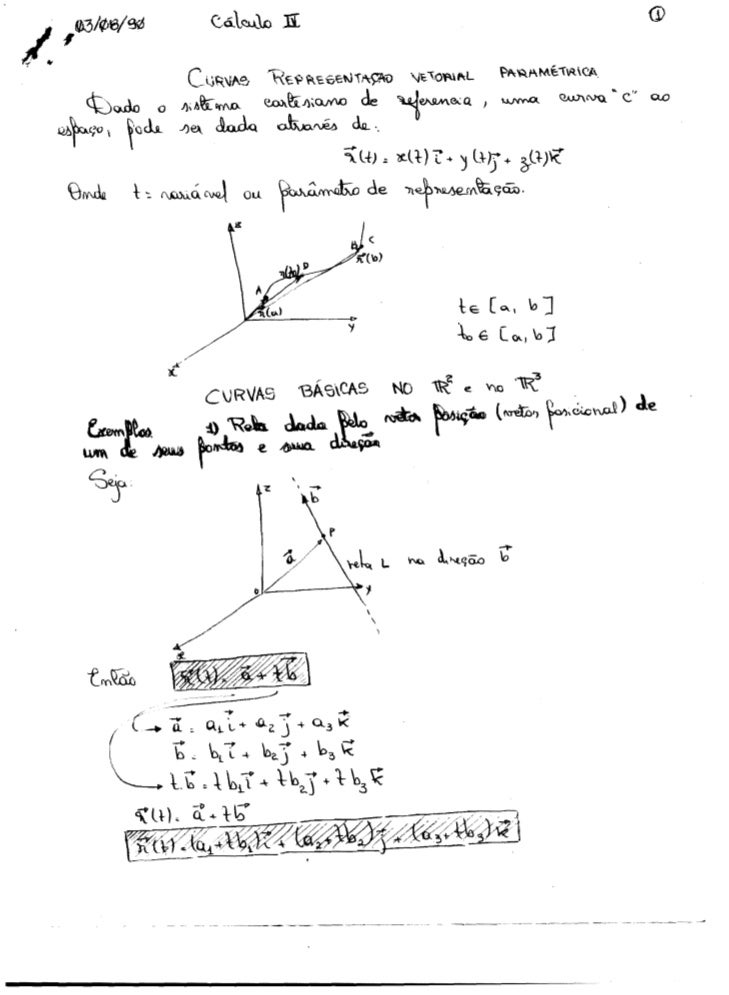 03/08/90 Cálculo IV ①
CURVAS REPRESENTAÇÃO VETORIAL PARAMÉTRICA
Dado o sistema cartesiano de referencia, uma curva "c" ao
espaço, pode ser dada através de:
r⃗(t) = x(t) i⃗ + y(t) j⃗ + z(t) k⃗
Onde t = variável ou parâmetro de representação.
z
C
B
r⃗(b)
r(t₀) D
A
r⃗(a)
y
x
t ∈ [a, b]
t₀ ∈ [a, b]
CURVAS BÁSICAS NO ℝ² e no ℝ³
Exemplos 1) Reta dada pelo vetor posição (vetor posicional) de
um de seus pontos e sua direção
Seja:
z
b⃗
P
a⃗
reta L na direção b⃗
0
y
x
Então r⃗(t) = a⃗ + t b⃗
a⃗ = a₁ i⃗ + a₂ j⃗ + a₃ k⃗
b⃗ = b₁ i⃗ + b₂ j⃗ + b₃ k⃗
t.b⃗ = t b₁ i⃗ + t b₂ j⃗ + t b₃ k⃗
r⃗(t) = a⃗ + t b⃗
r⃗(t) = (a₁ + t b₁) i⃗ + (a₂ + t b₂) j⃗ + (a₃ + t b₃) k⃗